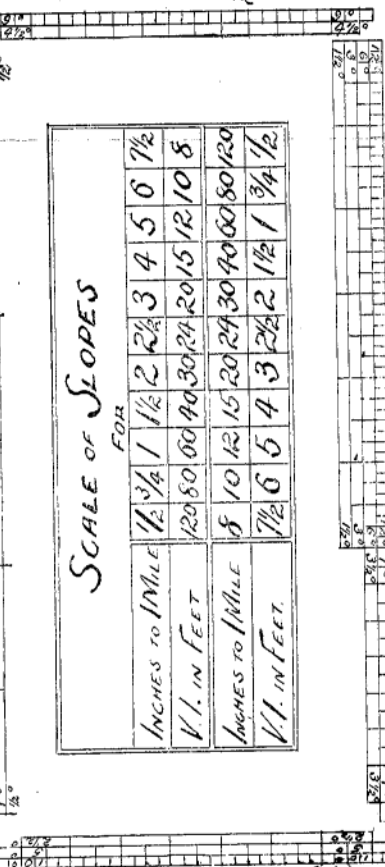 SCALE OF SLOPES
FOR
INCHES TO 1 MILE ½ ¾ 1 1½ 2 2½ 3 4 5 6 7½
V.I. IN FEET 120 80 60 40 30 24 20 15 12 10 8
INCHES TO 1 MILE 8 10 12 15 20 24 30 40 60 80 120
V.I. IN FEET. 7½ 6 5 4 3 2½ 2 1½ 1 ¾ ½
4½°
4½°
12°
6°
3°
1½°
6°
3°
1½°
3½°
3½°
½°